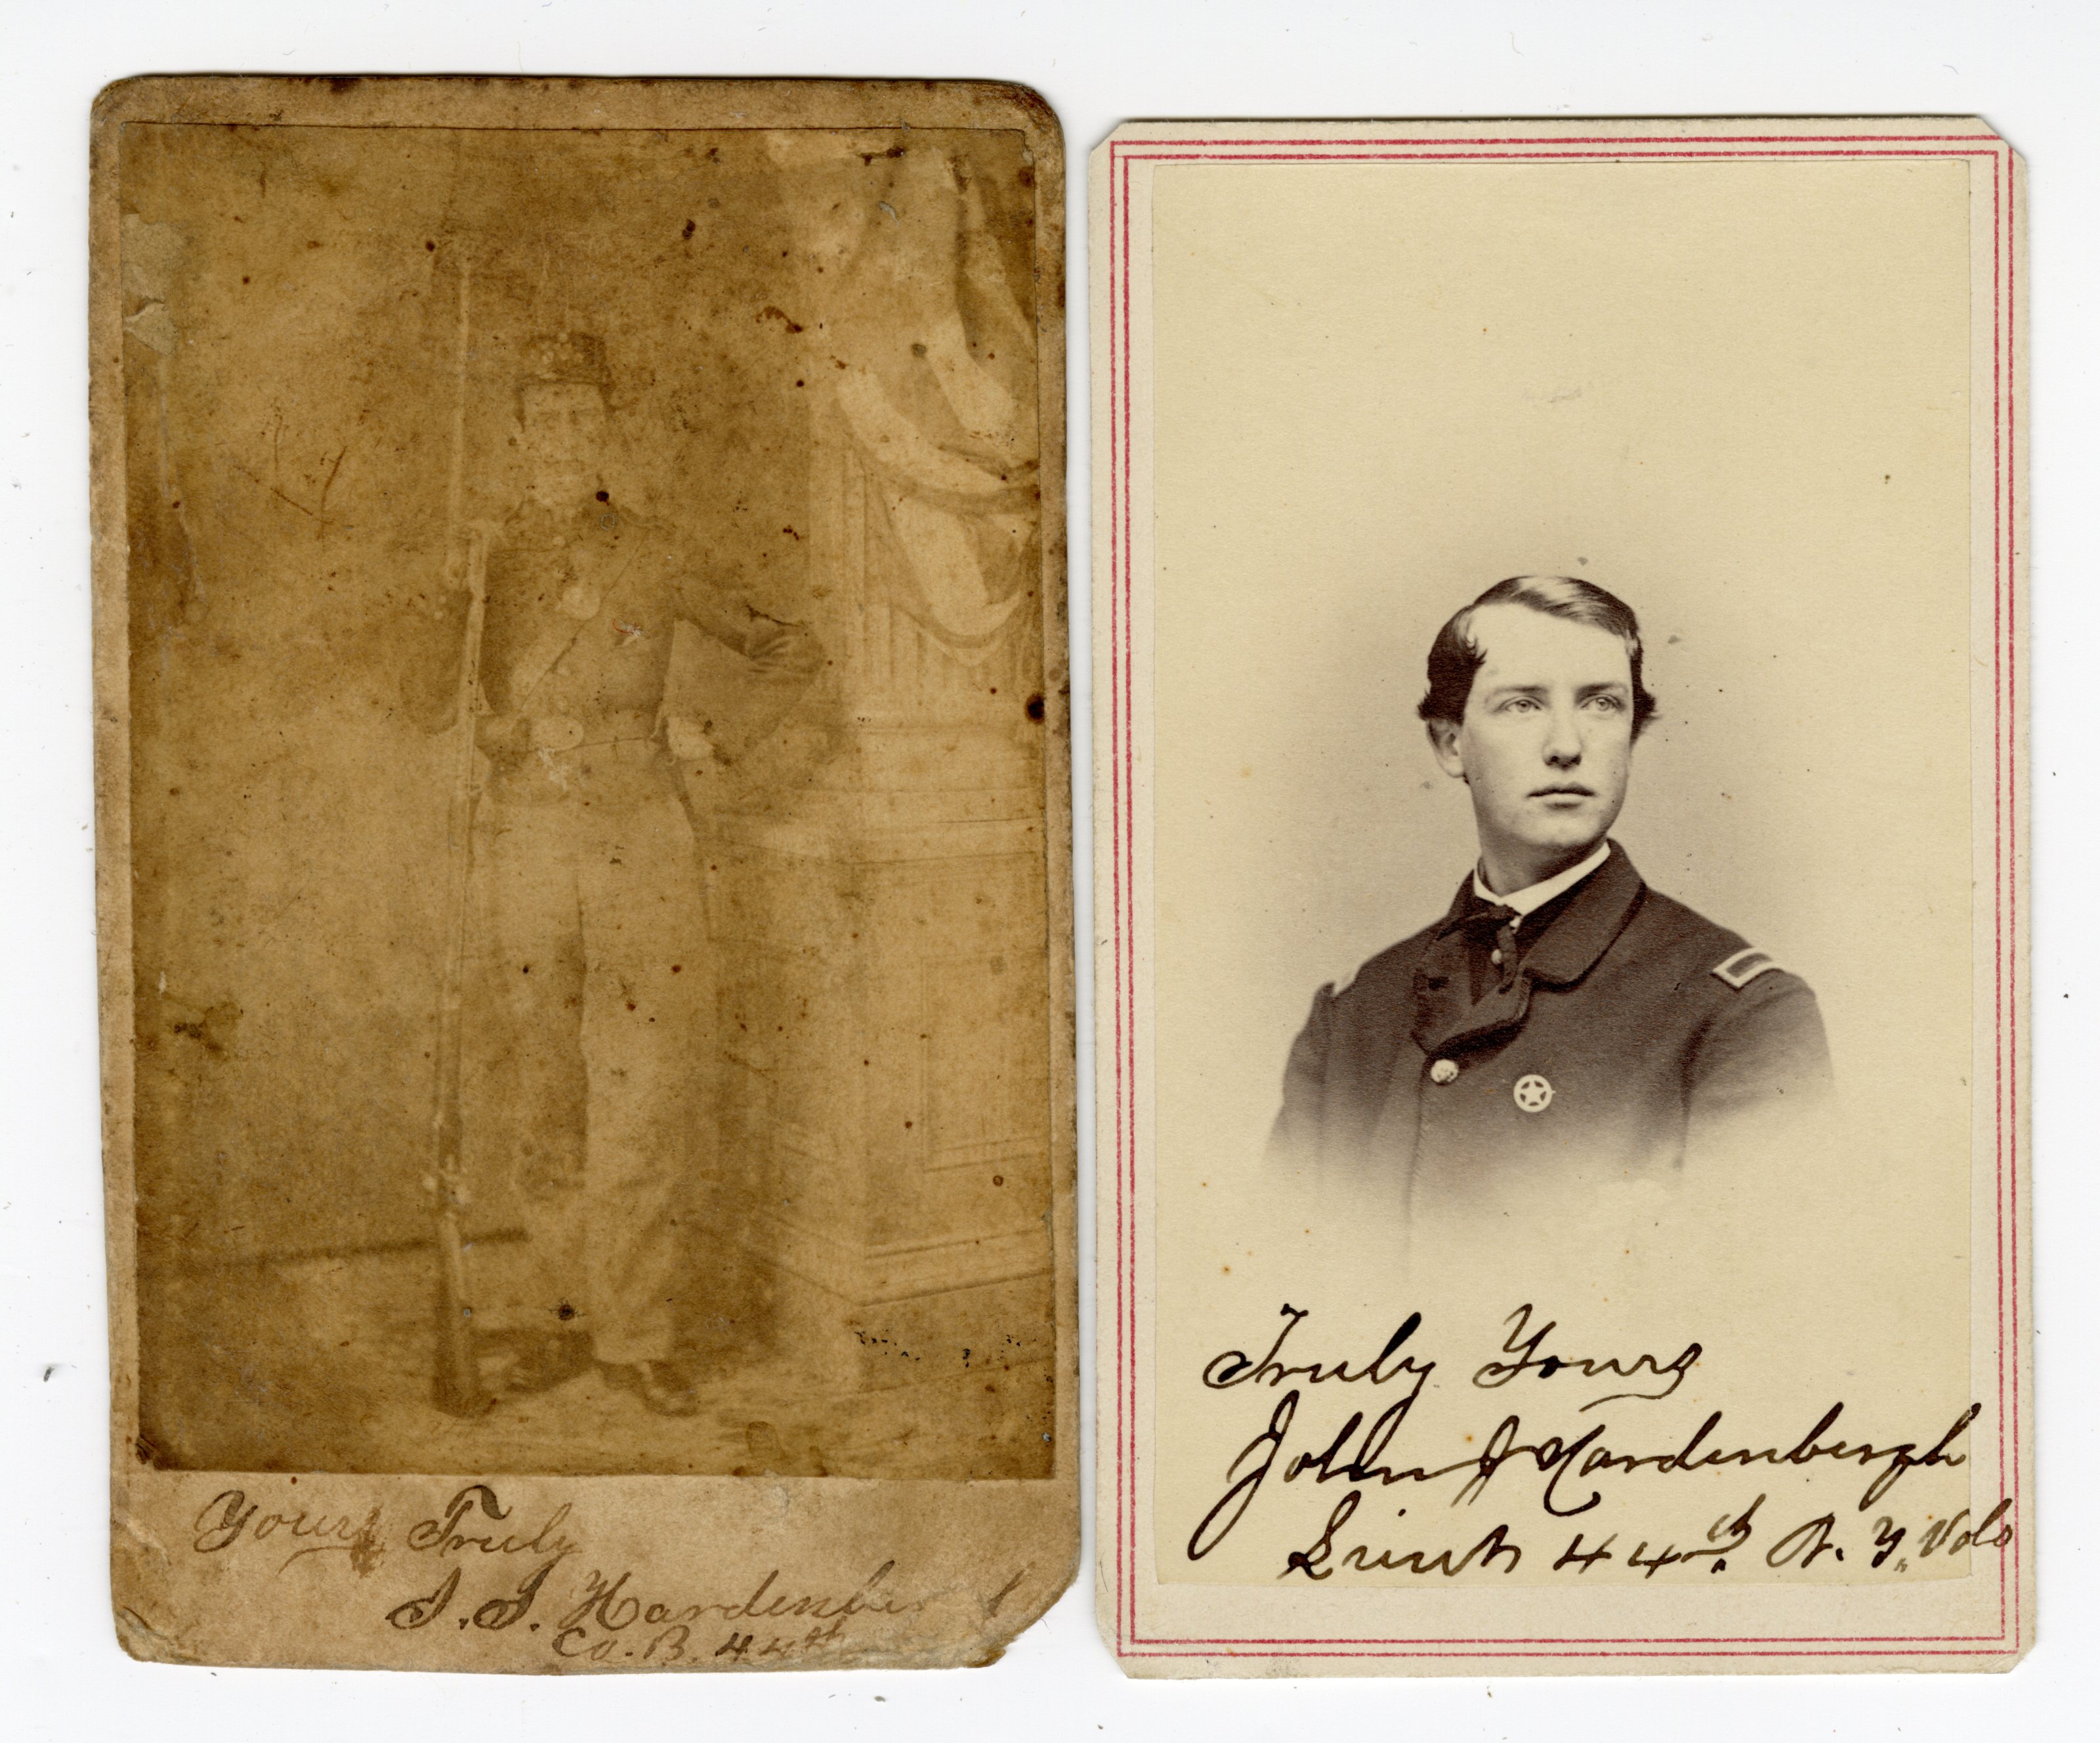 Yours Truly
J. J. Hardenbergh
Co. B. 44th
Truly Yours
John J Hardenbergh
Lieut 44th N. Y. Vols